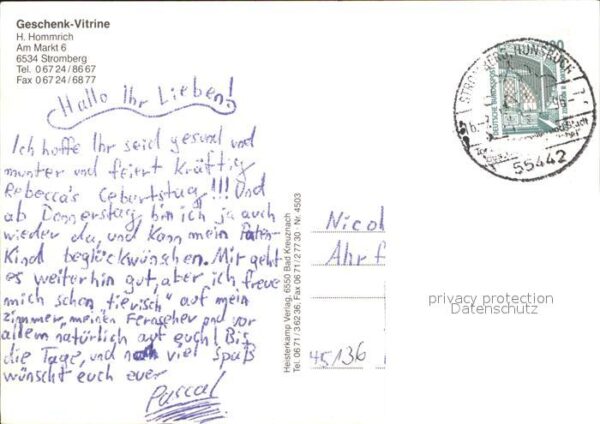 Geschenk-Vitrine
H. Hommrich
Am Markt 6
6534 Stromberg
Tel. 0 67 24 / 86 67
Fax 0 67 24 / 68 77
Hallo Ihr Lieben!
Ich hoffe Ihr seid gesund und
munter und feiert kräftig
Rebecca's Geburtstag!!! Und
ab Donnerstag bin ich ja auch
wieder da, und kann mein Paten-
Kind beglückwünschen. Mir geht
es weiterhin gut, aber ich freue
mich schon "tierisch" auf mein
Zimmer, meinen Fernseher und vor
allem natürlich auf euch! Bis
die Tage, und noch viel Spaß
wünscht euch euer
Pascal
Heisterkamp Verlag, 6550 Bad Kreuznach
Tel. 06 71 / 3 62 36, Fax 06 71 / 2 77 30 · Nr. 4503
Nicol
Ahrf
45136
DEUTSCHE BUNDESPOST
55442
privacy protection
Datenschutz